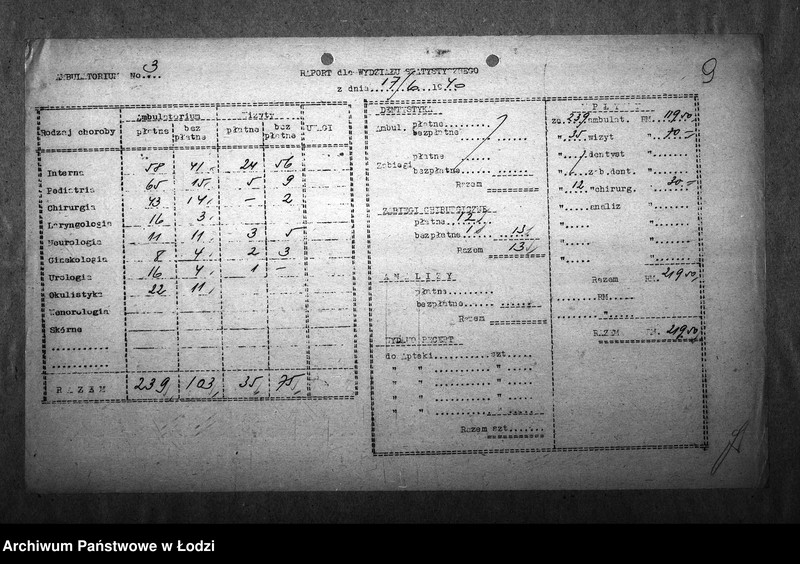 AMBULATORIUM No. 3
RAPORT dla WYDZIAŁU STATYSTYCZNEGO
z dnia 17/6 1940
9
Rodzaj choroby Ambulatorium Wizyty UWAGI
płatne bez płatne płatne bez płatne
Interna 58 41 24 56
Pediatria 65 15 5 9
Chirurgia 43 14 - 2
Laryngologia 16 3
Neurologia 11 11 3 5
Ginekologia 8 4 2 3
Urologia 16 4 1 -
Okulistyka 22 11
Wenerologia
Skórne
RAZEM 239 103 35 75
DENTYSTYKA
Ambul. płatne
bezpłatne
Zabiegi płatne
bezpłatne
Razem
ZABIEGI CHIRURGICZNE
płatne 12
bezpłatne 1 13
Razem 13
ANALIZY
płatne
bezpłatne
Razem
WYDANO RECEPT
do Apteki szt.
" " " "
" " " "
" " " "
" " " "
Razem szt.
za 239 ambulat. RM. 119.50
" 35 wizyt " 70.-
" dentyst "
" zab.dent. "
" 12 "chirurg. " 30.-
" analiz "
" "
" "
" "
Razem RM. 219.50
RM.
"
RAZEM RM. 219.50
Archiwum Państwowe w Łodzi